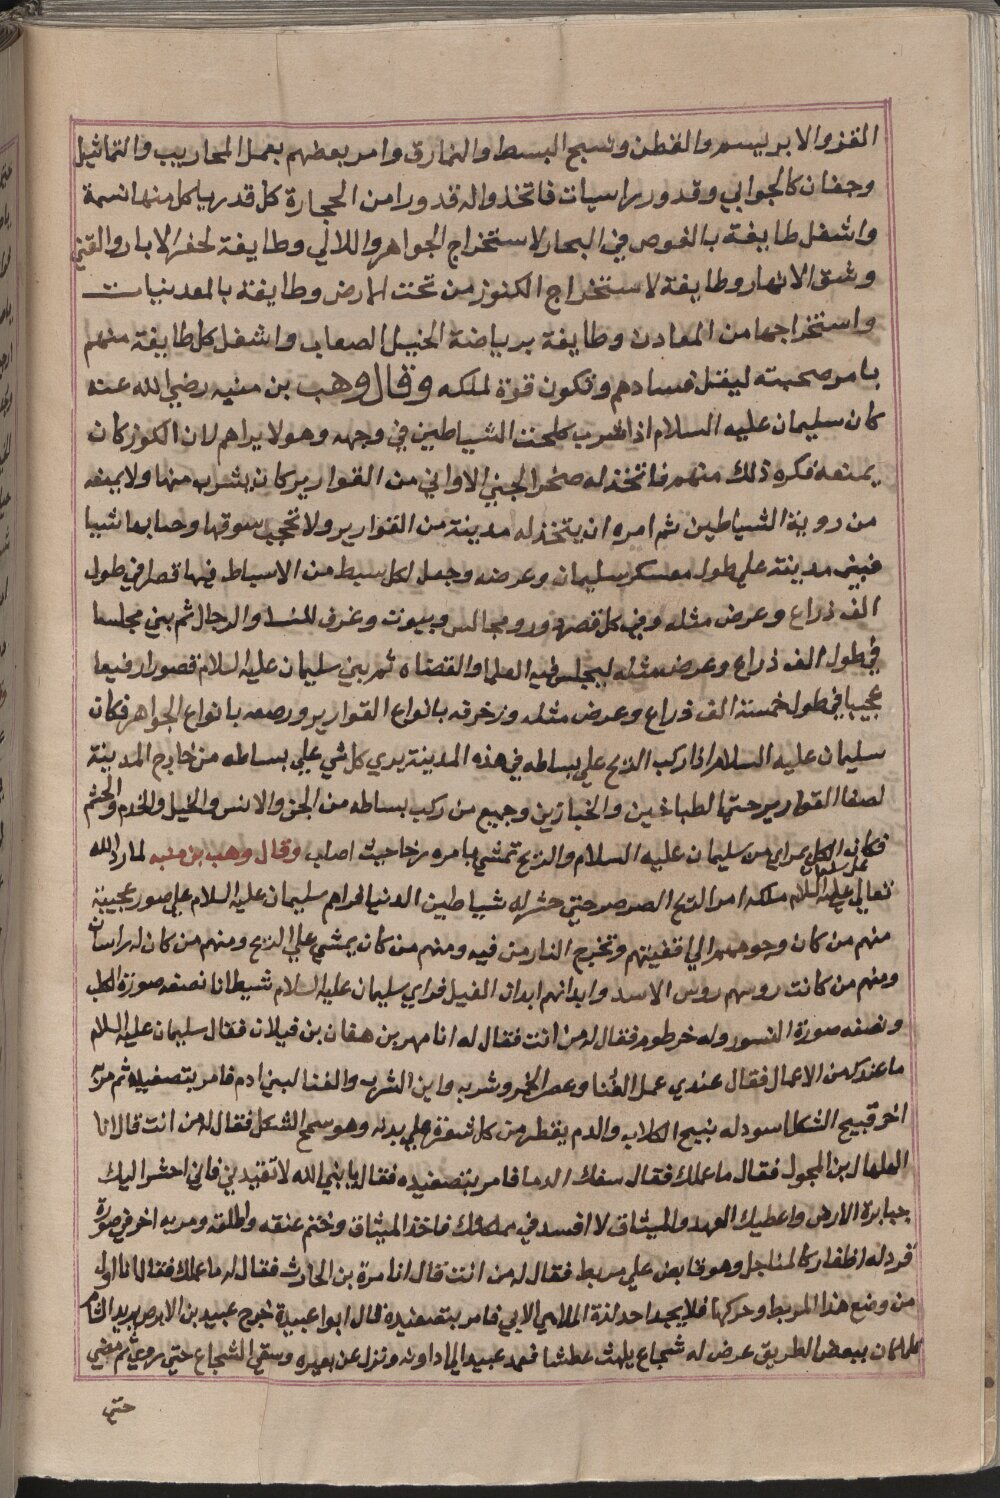 القز والابريسم والقطن ونسج البسط والنمارق وامر بعضهم بعمل المحاريب والتماثيل
وجفان كالجوابي وقدور راسيات فاتخذوا له قدورا من الحجارة كل قدر ياكل منها نسمة
واشغل طايفة بالغوص في البحار لاستخراج الجواهر واللالي وطايفة لحفر الابار والقني
وشق الانهار وطايفة لاستخراج الكنوز من تحت الارض وطايفة بالمعدنيات
واستخراجها من المعادن وطايفة برياضة الخيل الصعاب واشغل كل طايفة منهم
بامر صحبته ليقتل فسادهم وتكون قوة لملكه وقال وهب بن منبه رضي الله عنه
كان سليمان عليه السلام اذا شرب كلحت الشياطين في وجهه وهو لا يراهم لان الكوز كان
يمنعه فكره ذلك منهم فاتخذ له صخر الجني الاواني من القوارير كان يشرب منها ولا يمنعه
من روية الشياطين ثم امره ان يتخذ له مدينة من القوارير ولا تحجب سوقها وحابها شيا
فبنى مدينة على طول معسكر سليمان وعرضه وجعل لكل سبط من الاسباط فيها قصرا في طول
الف ذراع وعرض مثله وفي كل قصر دور ومجالس وبيوت وغرف للنسا والرجال ثم بنى مجلسا
في طول الف ذراع وعرض مثله ليجلس فيه العلما والقضاه ثم بنى سليمان عليه السلام قصورا رفيعا
عجيبا في طول خمسة الف ذراع وعرض مثله وزخرفه بانواع القوارير ورصعه بانواع الجواهر فكان
سليمان عليه السلام اذا ركب الريح على بساطه في هذه المدينة يرى كل شي على بساطه من خارج المدينة
لصفا القوارير حتى الطباخين والخبازين وجميع من ركب بساطه من الجن والانس والخيل والخدم والحشم
فكان الكل بمراى من سليمان عليه السلام والريح تمشي بامره رخا حيث اصاب وقال وهب بن منبه لما رد الله
تعالى على سليمان عليه السلام ملكه امر الريح الصرصر حتى حشر له شياطين الدنيا فراهم سليمان عليه السلام على صور عجيبة
منهم من كان وجوههم الى اقفيتهم وتخرج النار من فيه ومنهم من كان يمشي على الريح ومنهم من كان له راسان
ومنهم من كانت روسهم روس الاسد وابدانهم ابدان الفيل فراى سليمان عليه السلام شيطانا نصفه صورة الكلب
ونصفه صورة النسور وله خرطوم فقال له من انت فقال له انا مهر بن هفان بن فيلان فقال سليمان عليه السلام
ما عندك من الاعمال فقال عندي عمل الغنا وعصر الخمر وشربه وابن الشرب والغنا لبني ادم فامر بتصفيده ثم مر به
اخر قبيح الشكل اسود له نبيح الكلاب والدم يقطر من كل شعرة على بدنه وهو سمج الشكل فقال له من انت قال انا
الهلهال بن المحول فقال ما عملك فقال سفك الدما فامر بتصفيده فقال يا نبي الله لا تقيدني فاني احشر اليك
جبابرة الارض واعطيك العهد والميثاق لا افسد في مملكتك فاخذ الميثاق وختم عنقه واطلقه ومر به اخر في صورة
قرد له اظفار كالمناجل وهو قابض على مربط فقال له من انت قال انا مرة بن الحارث فقال له ما عملك فقال انا اول
من وضع هذا المربط وحركها فلا يجد احد لذة الملاهي الا بي فامر بتصفيده قال ابو عبيدة خرج عبيد بن الابرص يريد الشام
فلما كان ببعض الطريق عرض له شجاع يلهث عطشا فعمد عبيد الى اداوته ونزل عن بعيره وسقى الشجاع حتى روي ثم مضى
حتى